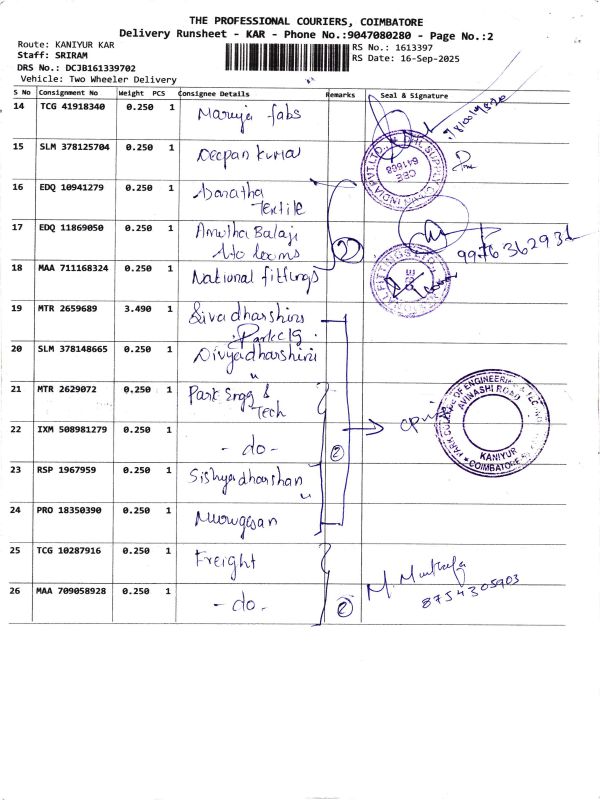 THE PROFESSIONAL COURIERS, COIMBATORE
Delivery Runsheet - KAR - Phone No.:9047080280 - Page No.:2
Route: KANIYUR KAR
RS No.: 1613397
Staff: SRIRAM
RS Date: 16-Sep-2025
DRS No.: DCJB161339702
Vehicle: Two Wheeler Delivery
S No Consignment No Weight PCS Consignee Details Remarks Seal & Signature
14 TCG 41918340 0.250 1 Maruja fabs
15 SLM 378125704 0.250 1 Deepan Kumar
16 EDQ 10941279 0.250 1 Textile
17 EDQ 11869050 0.250 1 Amutha Balaji
2
9976362931
18 MAA 711168324 0.250 1 National fittings
19 MTR 2659689 3.490 1 Sivadharshini
Park clg
20 SLM 378148665 0.250 1 Divyadharshini
"
21 MTR 2629072 0.250 1 Park Engg &
Tech
22 IXM 508981279 0.250 1 - do -
2
PARK COLLEGE OF ENGINEERING & TEC
AVINASHI ROAD
KANIYUR
COIMBATORE
23 RSP 1967959 0.250 1
"
24 PRO 18350390 0.250 1 Murugesan
25 TCG 10287916 0.250 1 Freight
26 MAA 709058928 0.250 1 - do -
2
M. Mustafa
8754305903